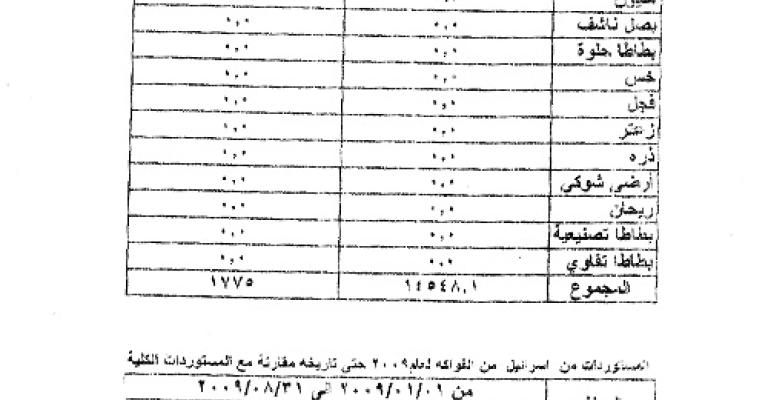 ٠,٠ ٠,٠
بصل ناشف ٠,٠ ٠,٠
بطاطا حلوة ٠,٠ ٠,٠
خس ٠,٠ ٠,٠
فجل ٠,٠ ٠,٠
زعتر ٠,٠ ٠,٠
ذره ٠,٠ ٠,٠
أرضي شوكي ٠,٠ ٠,٠
ريحان ٠,٠ ٠,٠
بطاطا تصنيعية ٠,٠ ٠,٠
بطاطا تقاوي ٠,٠ ٠,٠
المجموع ١٤٥٤٨,١ ١٧٧٥
المستوردات من اسرائيل من الفواكه لعام ٢٠٠٩ حتى تاريخه مقارنة مع المستوردات الكلية
من ٢٠٠٩/٠١/٠١ الى ٢٠٠٩/٠٨/٣١